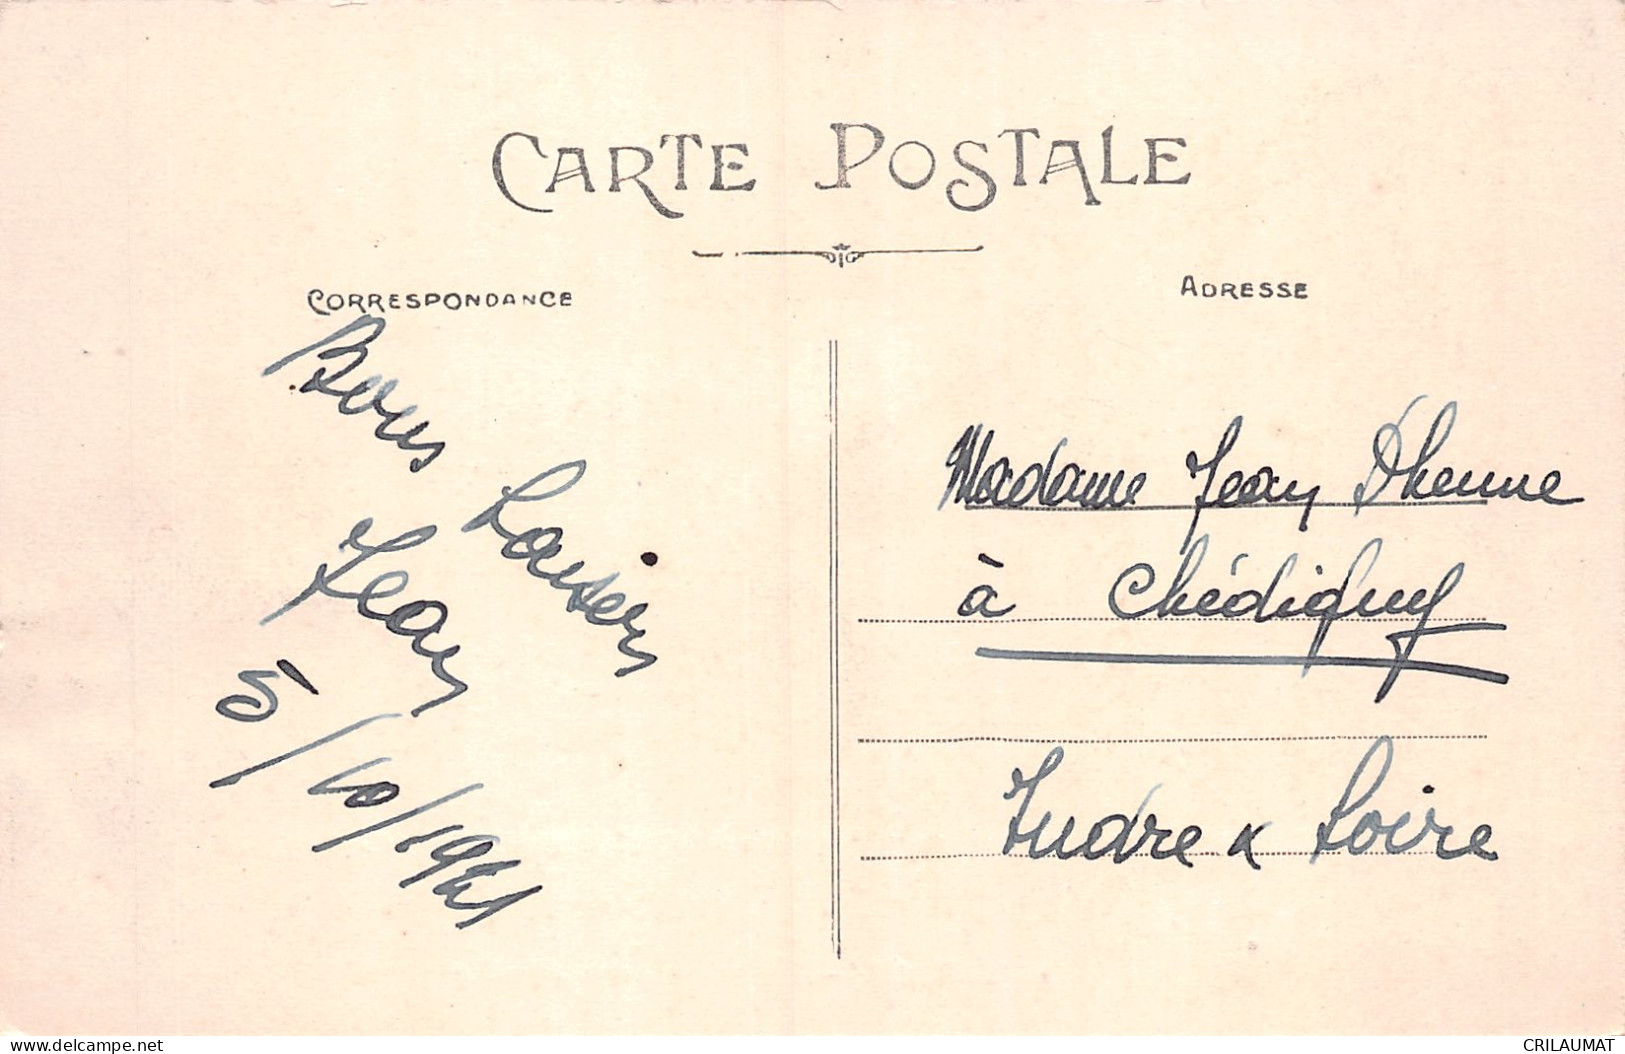 CARTE POSTALE
CORRESPONDANCE
ADRESSE
Bons baisers
Jean
5/10/1921
Madame Jean Dhenne
à Chédigny
Indre & Loire
www.delcampe.net
CRILAUMAT